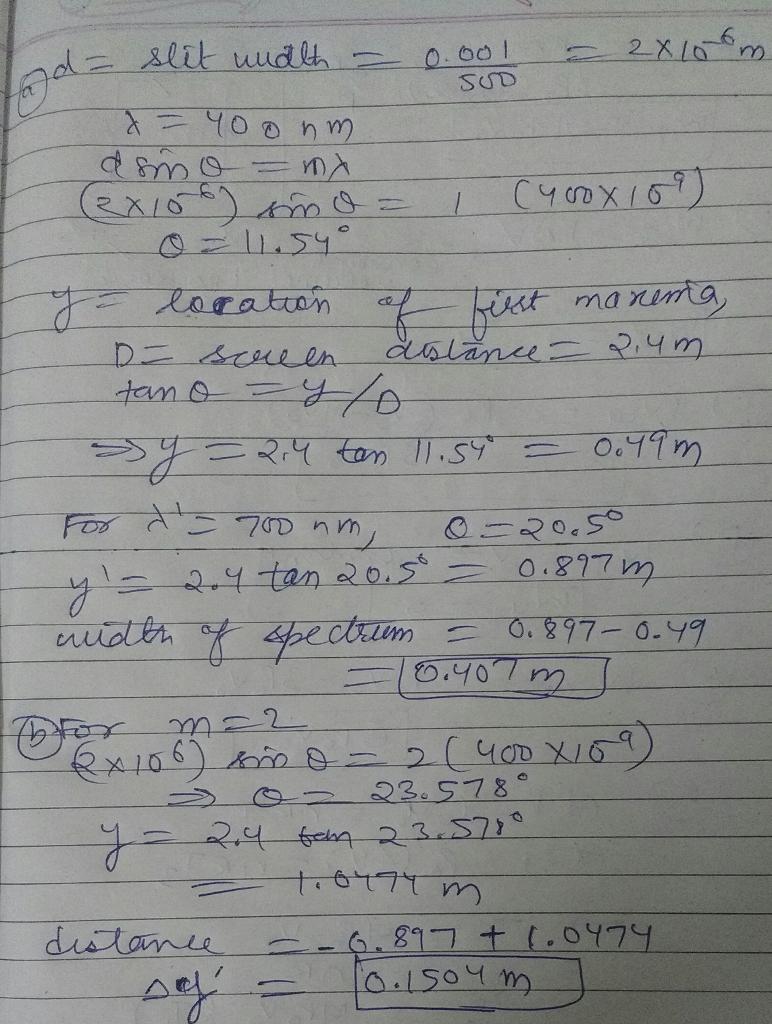 (a) d = slit width = 0.001/500 = 2×10⁻⁶ m
λ = 400 nm
d sin θ = mλ
(2×10⁻⁶) sin θ = 1 (400×10⁻⁹)
θ = 11.54°
y = location of first maxima,
D = screen distance = 2.4 m
tan θ = y/D
⇒ y = 2.4 tan 11.54° = 0.49 m
For λ' = 700 nm, θ = 20.5°
y' = 2.4 tan 20.5° = 0.897 m
width of spectrum = 0.897 - 0.49
= 0.407 m
(b) For m = 2
(2×10⁻⁶) sin θ = 2 (400×10⁻⁹)
⇒ θ = 23.578°
y = 2.4 tan 23.578°
= 1.0474 m
distance = -0.897 + 1.0474
Δy' = 0.1504 m